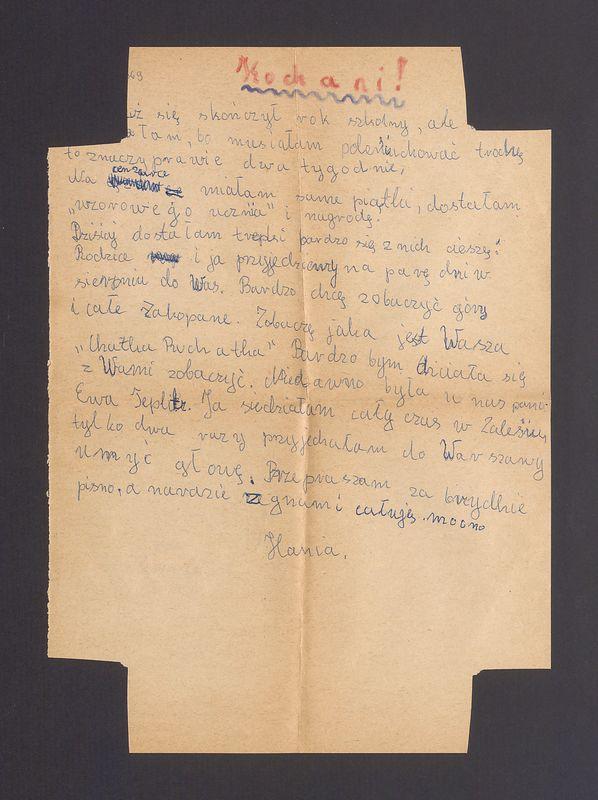 69
Kochani!
uż się skończył rok szkolny, ale
ałam, bo musiałam poleniuchować trochę
to znaczy prawie dwa tygodnie,
Na cenzurce miałam same piątki, dostałam
„wzorowego ucznia" i nagrodę.
Dzisiaj dostałam trepki bardzo się z nich cieszę.
Rodzice i ja przyjedziemy na parę dni w
sierpniu do Was. Bardzo chcę zobaczyć góry
i całe Zakopane. Zobaczę jaka jest Wasza
„Chatka Puchatka" Bardzo bym chciała się
z Wami zobaczyć. Niedawno była u nas pani
Ewa Ja siedziałam cały czas w Zalesiu,
tylko dwa razy przyjechałam do Warszawy
umyć głowę. Przepraszam za brzydkie
pismo, a narazie żegnam i całuję mocno
Hania.